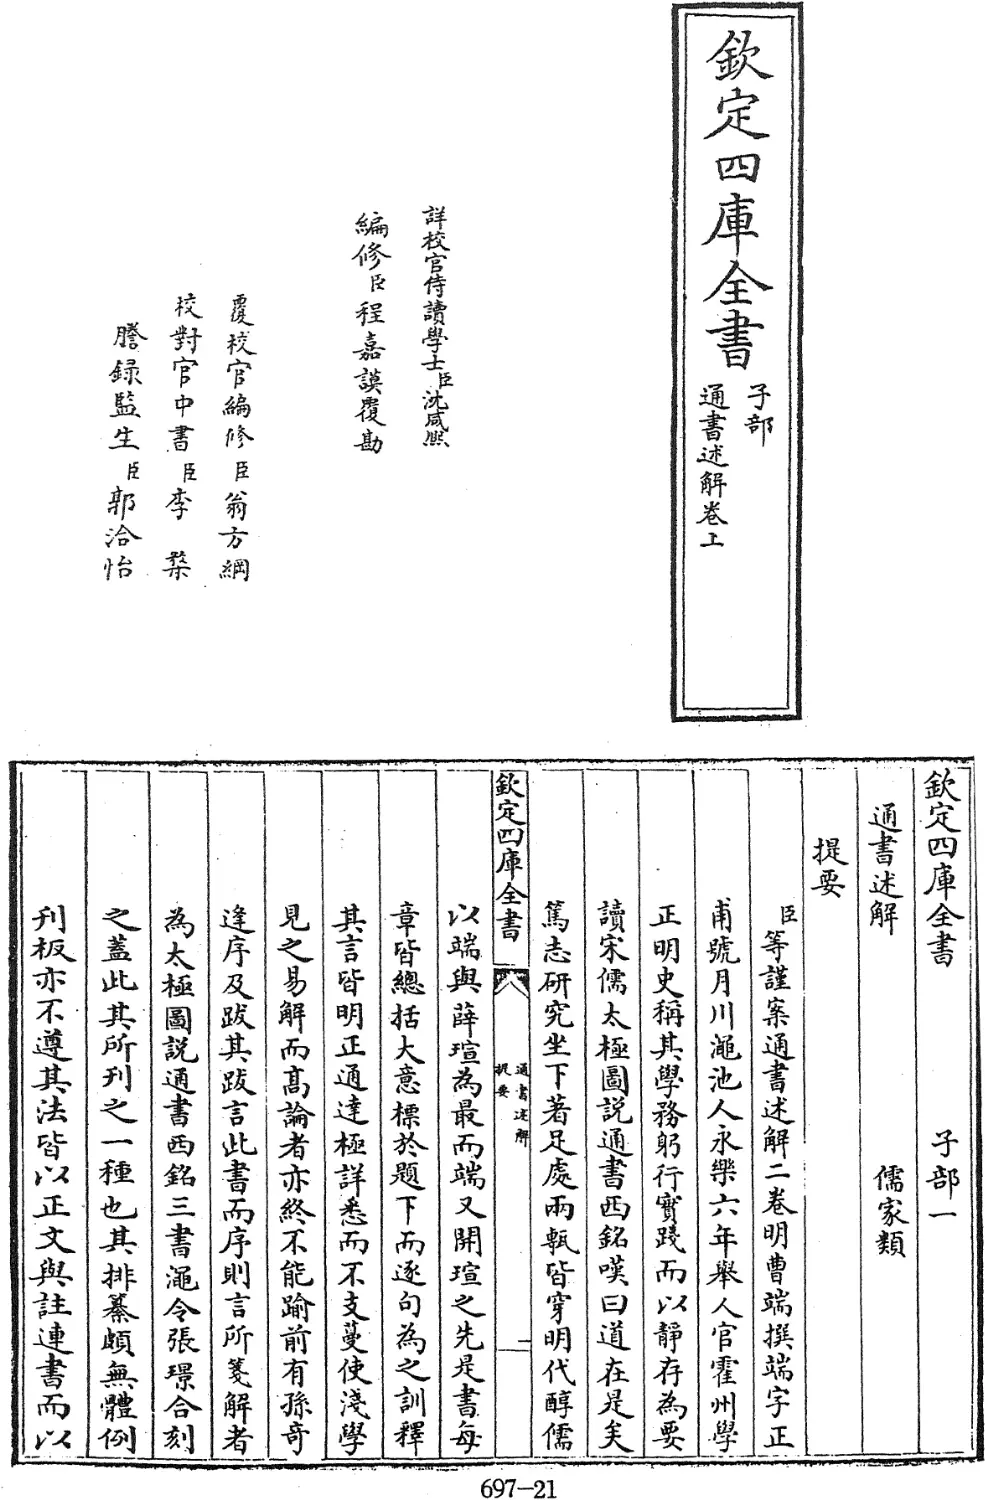 欽定四庫全書
子部
通書述解卷上
詳校官侍讀學士臣沈咸熙
編修臣程嘉謨覆勘
覆校官編修臣翁方綱
校對官中書臣李楘
謄録監生臣郭洽怡
欽定四庫全書 子部一
通書述解 儒家類
提要
臣等謹案通書述解二卷明曹端撰端字正
甫號月川澠池人永樂六年舉人官霍州學
正明史稱其學務躬行實踐而以靜存為要
讀宋儒太極圖説通書西銘嘆曰道在是矣
篤志研究坐下著足處兩甎皆穿明代醇儒
欽定四庫全書
通書述解
提要
一
以端與薛瑄為最而端又開瑄之先是書每
章皆總括大意標於題下而逐句為之訓釋
其言皆明正通達極詳悉而不支蔓使淺學
見之易解而高論者亦終不能踰前有孫竒
逢序及跋其跋言此書而序則言所箋解者
為太極圖説通書西銘三書澠令張璟合刻
之蓋此其所刊之一種也其排纂頗無體例
刊板亦不遵其法皆以正文與註連書而以
697-21